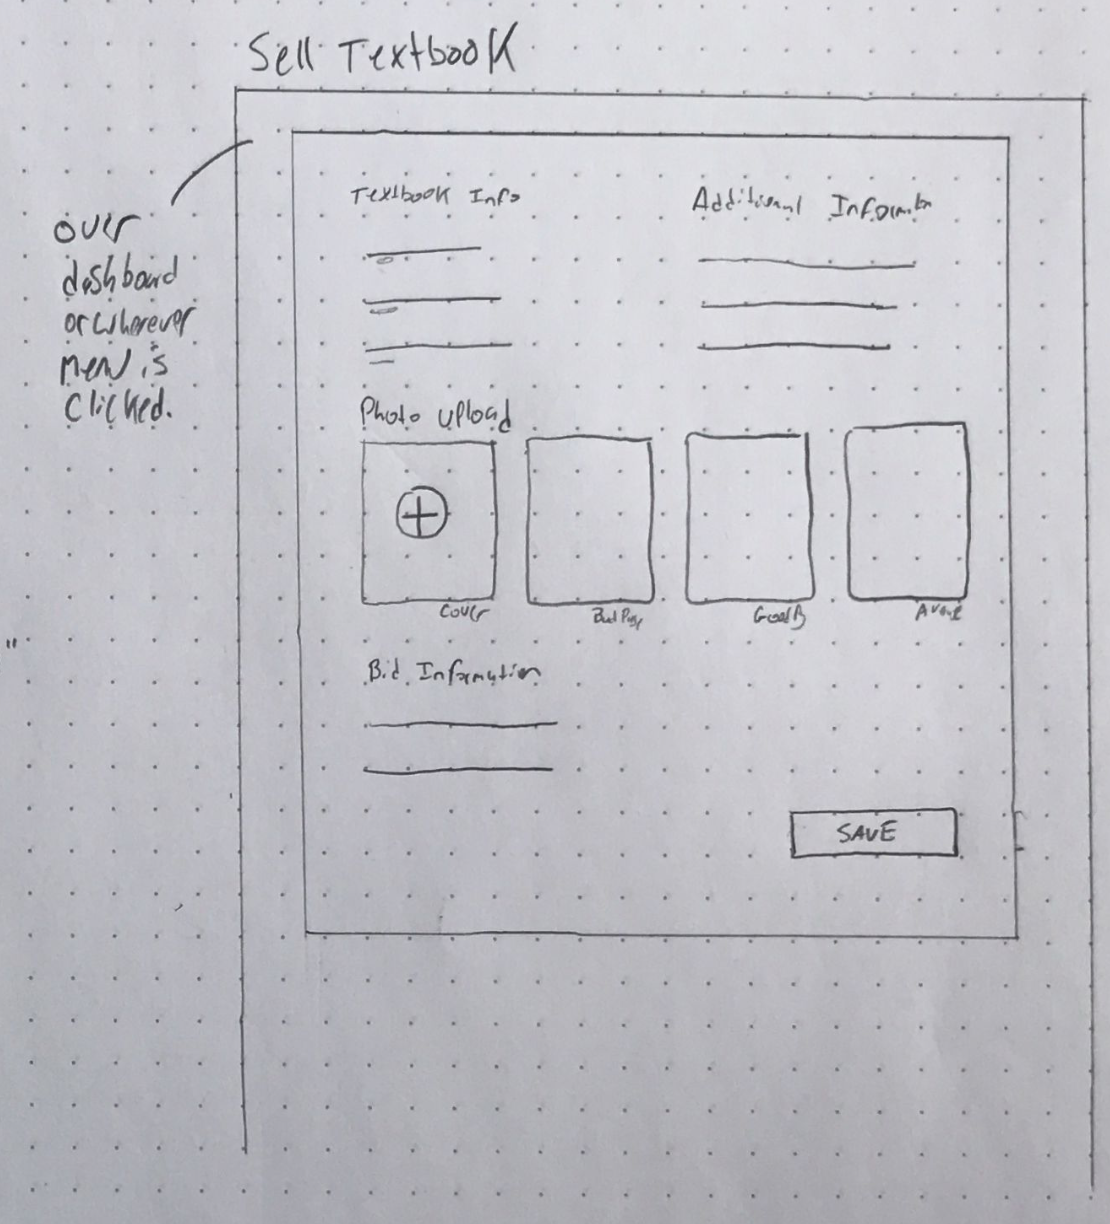 Sell Textbook
over
dashboard
or wherever
menu is
clicked.
Textbook Info
Additional
Photo upload
Cover
Bad Page
Bid Information
SAVE